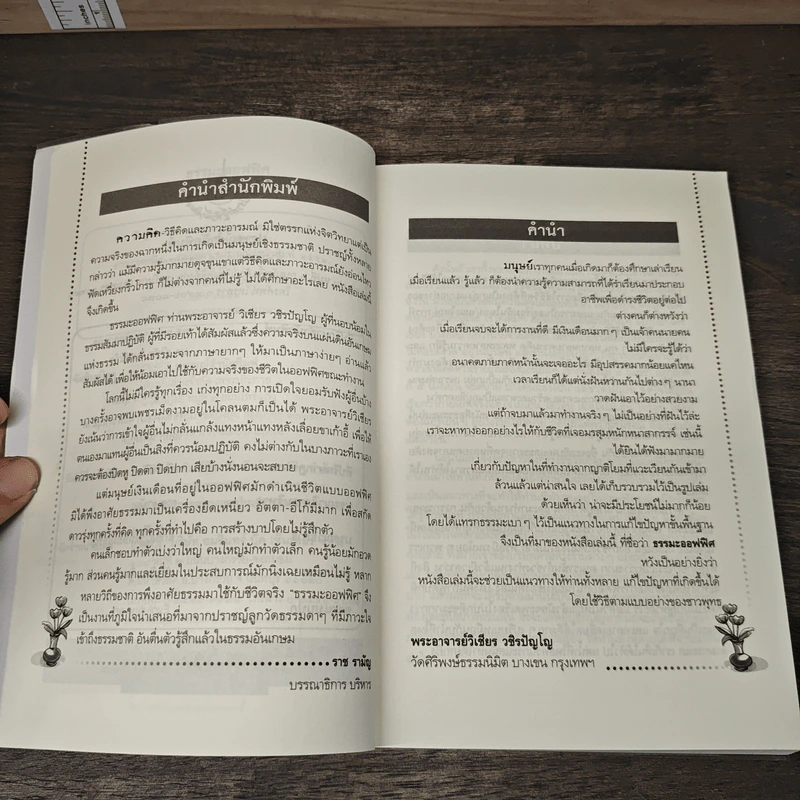 inches
คำนำสำนักพิมพ์
ความคิด-วิธีคิดและภาวะอารมณ์ มิใช่ตรรกแห่งจิตวิทยาแต่เป็น
ความจริงของฉากหนึ่งในการเกิดเป็นมนุษย์เชิงธรรมชาติ ปราชญ์ทั้งหลาย
กล่าวว่า แม้มีความรู้มากมายดุจขุนเขาแต่วิธีคิดและภาวะอารมณ์ยังอ่อนไหว
ฟัดเหวี่ยงกริ้วโกรธ ก็ไม่ต่างจากคนที่ไม่รู้ ไม่ได้ศึกษาอะไรเลย หนังสือเล่มนี้
จึงเกิดขึ้น
ธรรมะออฟฟิศ ท่านพระอาจารย์ วิเชียร วชิรปัญโญ ผู้ที่นอบน้อมใน
ธรรมสัมมาปฏิบัติ ผู้ที่มีรอยเท้าได้สัมผัสแล้วซึ่งความจริงบนแผ่นดินอันเกษม
แห่งธรรม ได้กลั่นธรรมะจากภาษายากๆ ให้มาเป็นภาษาง่ายๆ อ่านแล้ว
สัมผัสได้ เพื่อให้น้อมเอาไปใช้กับความจริงของชีวิตในออฟฟิศขณะทำงาน
โลกนี้ไม่มีใครรู้ทุกเรื่อง เก่งทุกอย่าง การเปิดใจยอมรับฟังผู้อื่นบ้าง
บางครั้งอาจพบเพชรเม็ดงามอยู่ในโคลนตมก็เป็นได้ พระอาจารย์วิเชียร
ยังเน้นว่าการเข้าใจผู้อื่นไม่กลั่นแกล้งแทงหน้าแทงหลังเลื่อยขาเก้าอี้ เพื่อให้
ตนเองมาแทนผู้อื่นเป็นสิ่งที่ควรน้อมปฏิบัติ คงไม่ต่างกับในบางภาวะที่เราเอง
ควรจะต้องปิดหู ปิดตา ปิดปาก เสียบ้างนั่งนอนจะสบาย
แต่มนุษย์เงินเดือนที่อยู่ในออฟฟิศมักดำเนินชีวิตแบบออฟฟิศ
มิได้พึ่งอาศัยธรรมมาเป็นเครื่องยึดเหนี่ยว อัตตา-อีโก้มีมาก เพื่อสกัด
ดาวรุ่งทุกครั้งที่คิด ทุกครั้งที่ทำไปคือ การสร้างบาปโดยไม่รู้สึกตัว
คนเล็กชอบทำตัวเบ่งว่าใหญ่ คนใหญ่มักทำตัวเล็ก คนรู้น้อยมักอวด
รู้มาก ส่วนคนรู้มากและเยี่ยมในประสบการณ์มักนิ่งเฉยเหมือนไม่รู้ หลาก
หลายวิถีของการพึ่งอาศัยธรรมมาใช้กับชีวิตจริง "ธรรมะออฟฟิศ" จึง
เป็นงานที่ภูมิใจนำเสนอที่มาจากปราชญ์ลูกวัดธรรมดาๆ ที่มีภาวะใจ
เข้าถึงธรรมชาติ อันตื่นตัวรู้สึกแล้วในธรรมอันเกษม
ราช รามัญ
บรรณาธิการ บริหาร
คำนำ
มนุษย์เราทุกคนเมื่อเกิดมาก็ต้องศึกษาเล่าเรียน
เมื่อเรียนแล้ว รู้แล้ว ก็ต้องนำความรู้ความสามารถที่ได้ร่ำเรียนมาประกอบ
อาชีพเพื่อดำรงชีวิตอยู่ต่อไป
ต่างคนก็ต่างหวังว่า
เมื่อเรียนจบจะได้การงานที่ดี มีเงินเดือนมากๆ เป็นเจ้าคนนายคน
ไม่มีใครจะรู้ได้ว่า
อนาคตภายภาคหน้านั้นจะเจออะไร มีอุปสรรคมากน้อยแค่ไหน
เวลาเรียนก็ได้แต่นั่งฝันหวานกันไปต่างๆ นานา
วาดฝันเอาไว้อย่างสวยงาม
แต่ถ้าจบมาแล้วมาทำงานจริงๆ ไม่เป็นอย่างที่ฝันไว้ล่ะ
เราจะหาทางออกอย่างไรให้กับชีวิตที่เจอมรสุมหนักหนาสากรรจ์ เช่นนี้
ได้ยินได้ฟังมามากมาย
เกี่ยวกับปัญหาในที่ทำงานจากญาติโยมที่แวะเวียนกันเข้ามา
ล้วนแล้วแต่น่าสนใจ เลยได้เก็บรวบรวมไว้เป็นรูปเล่ม
ด้วยเห็นว่า น่าจะมีประโยชน์ไม่มากก็น้อย
โดยได้แทรกธรรมะเบาๆ ไว้เป็นแนวทางในการแก้ไขปัญหาขั้นพื้นฐาน
จึงเป็นที่มาของหนังสือเล่มนี้ ที่ชื่อว่า ธรรมะออฟฟิศ
หวังเป็นอย่างยิ่งว่า
หนังสือเล่มนี้จะช่วยเป็นแนวทางให้ท่านทั้งหลาย แก้ไขปัญหาที่เกิดขึ้นได้
โดยใช้วิธีตามแบบอย่างของชาวพุทธ
พระอาจารย์วิเชียร วชิรปัญโญ
วัดศิริพงษ์ธรรมนิมิต บางเขน กรุงเทพฯ